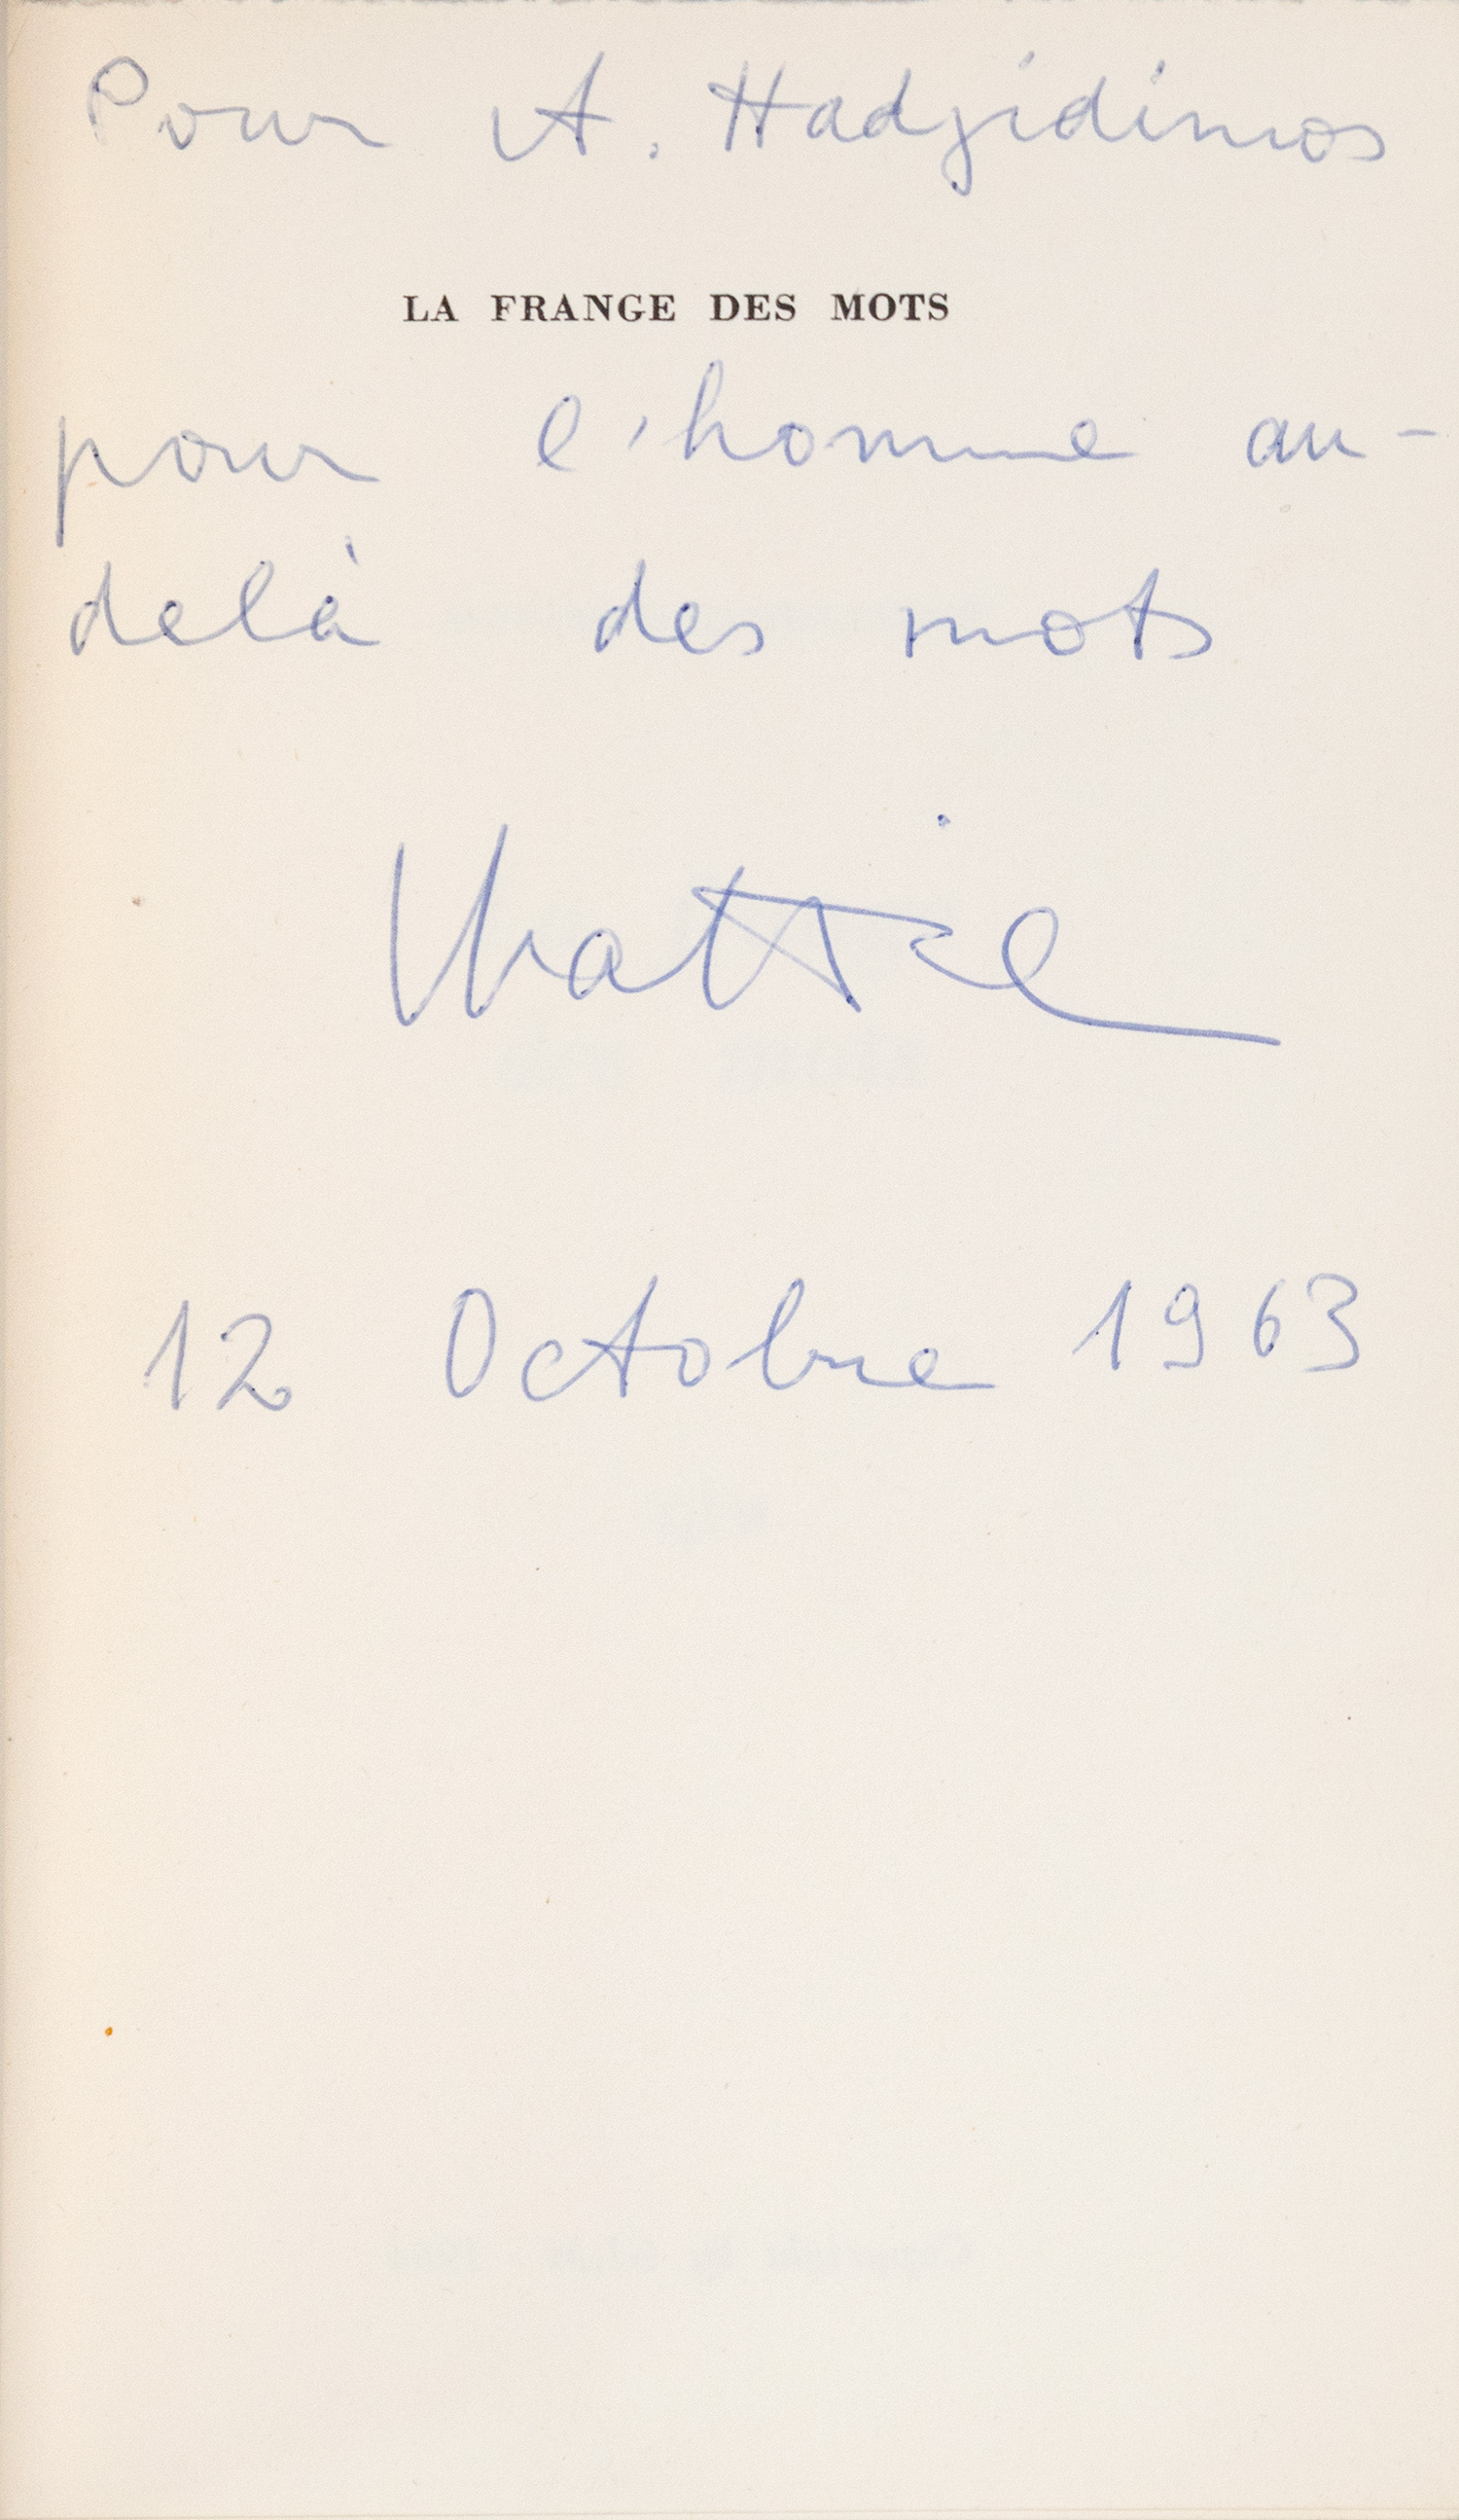 Pour A. Hadjidimos
LA FRANGE DES MOTS
pour l'homme au-
delà des mots
12 Octobre 1963